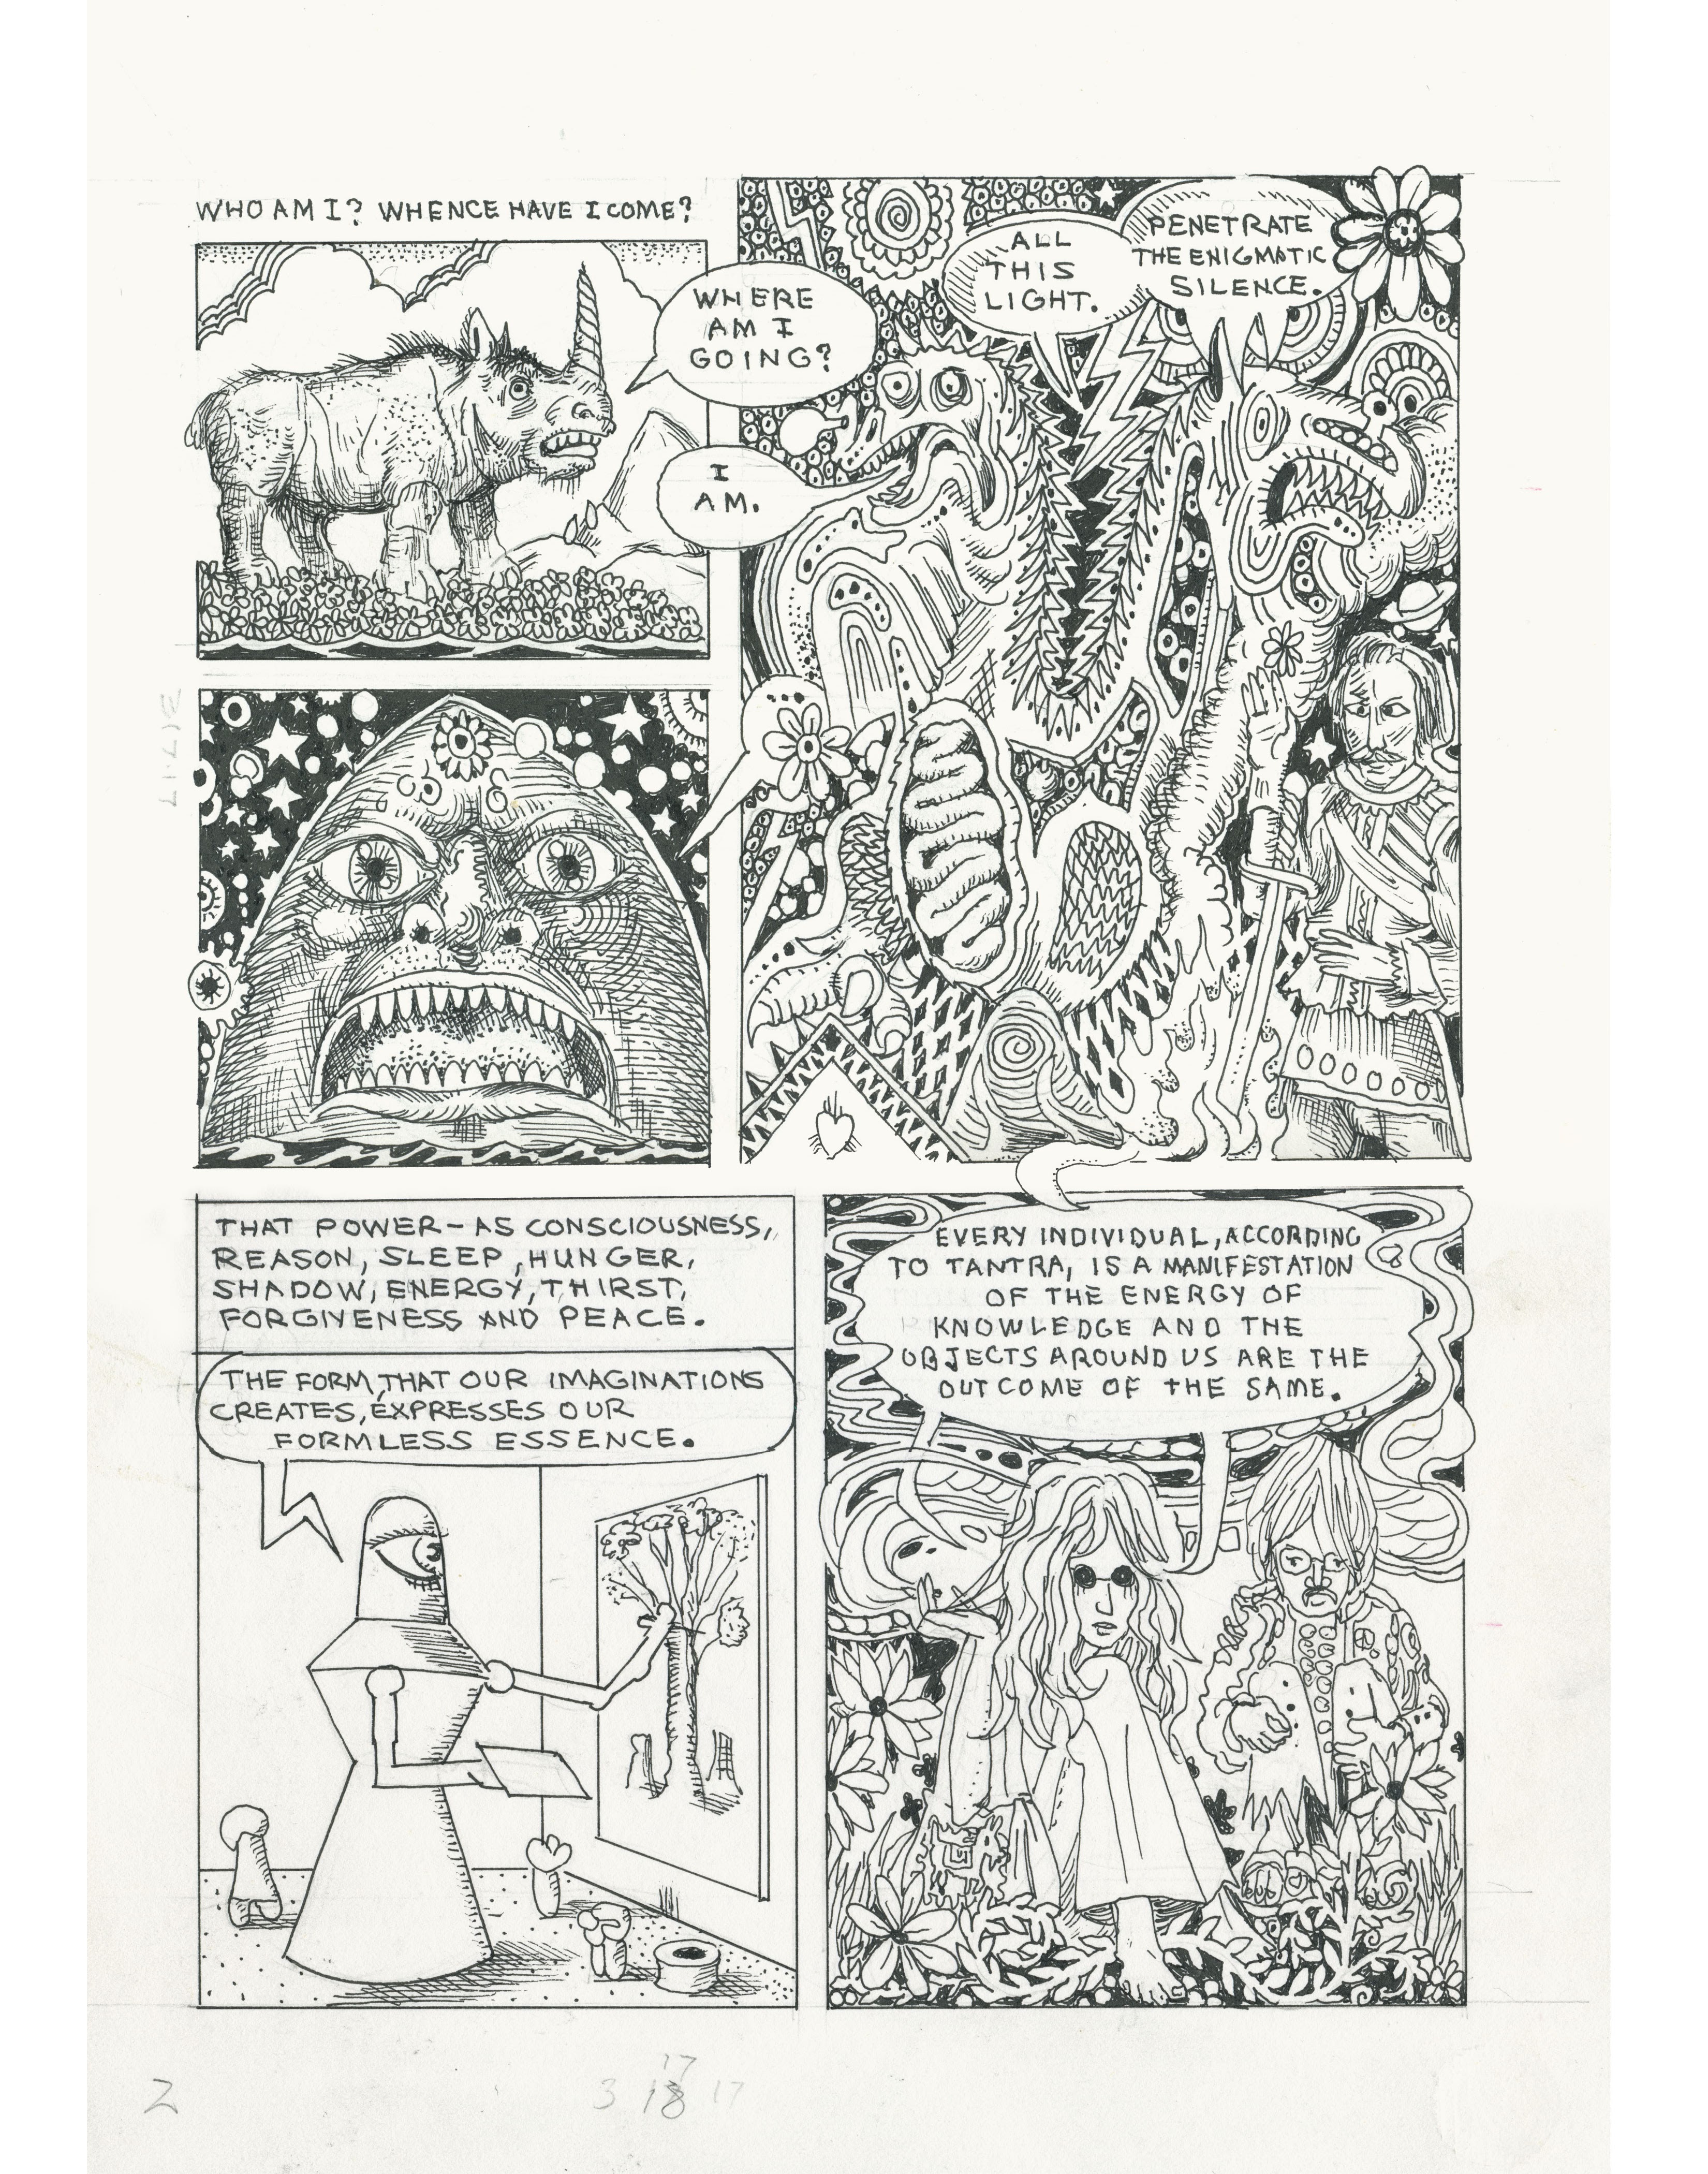 WHO AM I? WHENCE HAVE I COME?
WHERE
AM I
GOING?
I
AM.
ALL
THIS
LIGHT.
PENETRATE
THE ENIGMATIC
SILENCE.
THAT POWER - AS CONSCIOUSNESS,
REASON, SLEEP, HUNGER,
SHADOW, ENERGY, THIRST,
FORGIVENESS AND PEACE.
THE FORM, THAT OUR IMAGINATIONS
CREATES, EXPRESSES OUR
FORMLESS ESSENCE.
EVERY INDIVIDUAL, ACCORDING
TO TANTRA, IS A MANIFESTATION
OF THE ENERGY OF
KNOWLEDGE AND THE
OBJECTS AROUND US ARE THE
OUTCOME OF THE SAME.
2
17
3 18 17